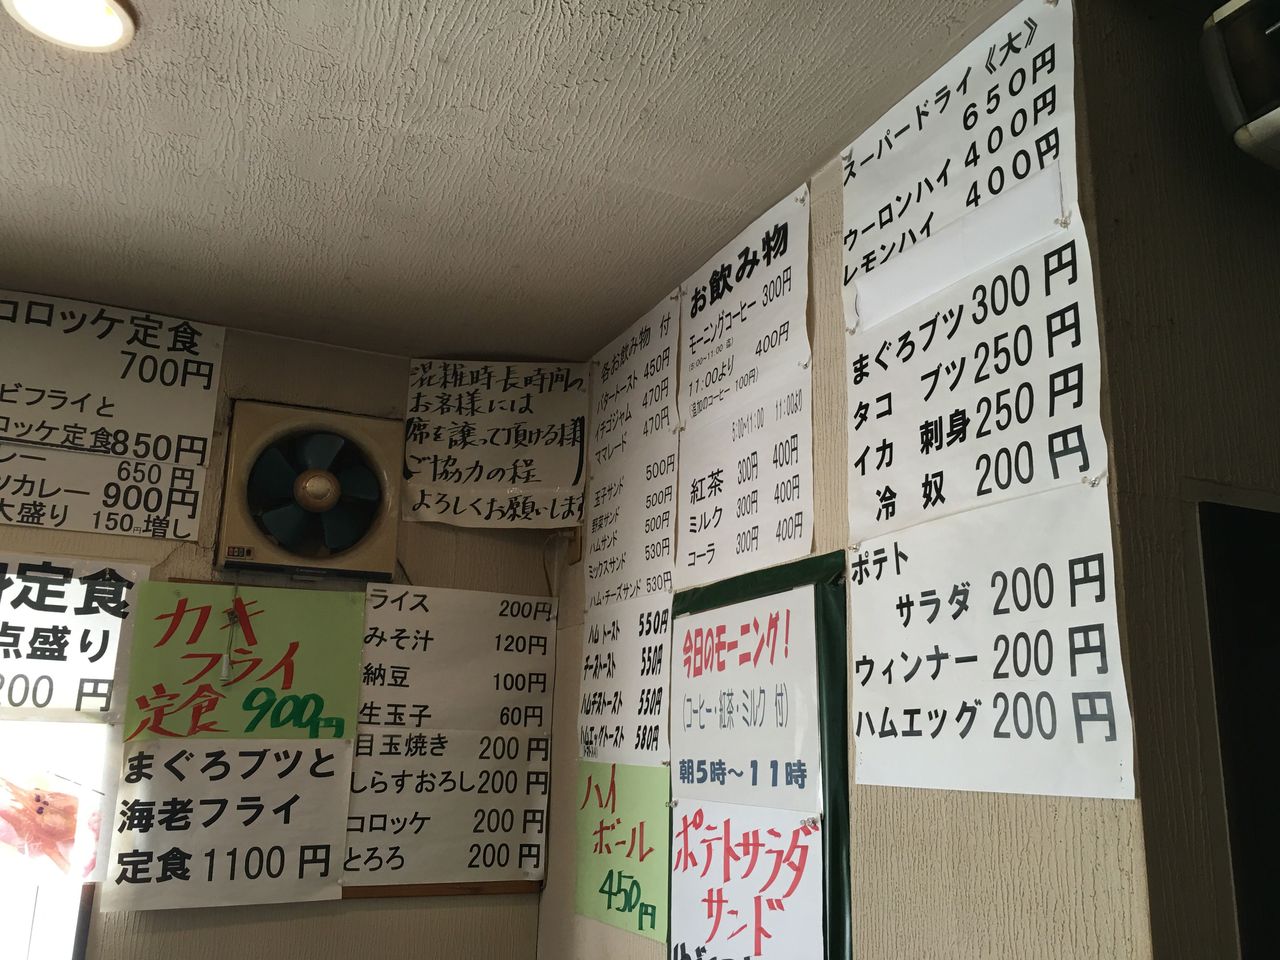 コロッケ定食
700円
ビフライと
ロッケ定食850円
レー 650円
ツカレー 900円
大盛り 150円増し
定食
点盛り
200円
カキ
フライ
定食 900円
まぐろブツと
海老フライ
定食1100円
混雑時長時間の
お客様には
席を譲って頂ける様
ご協力の程
よろしくお願いします
ライス 200円
みそ汁 120円
納豆 100円
生玉子 60円
目玉焼き 200円
しらすおろし200円
コロッケ 200円
とろろ 200円
各お飲み物 付
バタートースト 450円
イチゴジャム 470円
ママレード 470円
玉子サンド 500円
野菜サンド 500円
ハムサンド 500円
ミックスサンド 530円
ハム・チーズサンド 530円
ハムトースト 550円
チーズトースト 550円
ハムチーズトースト 550円
ハムエッグトースト 580円
ハイ
ボール
450円
お飲み物
モーニングコーヒー 300円
(5:00~11:00 迄)
11:00より 400円
(追加のコーヒー 100円)
5:00~11:00 11:00より
紅茶 300円 400円
ミルク 300円 400円
コーラ 300円 400円
今日のモーニング!
(コーヒー・紅茶・ミルク 付)
朝5時~11時
ポテトサラダ
サンド
スーパードライ《大》
650円
ウーロンハイ 400円
レモンハイ 400円
まぐろブツ 300円
タコ ブツ 250円
イカ 刺身 250円
冷 奴 200円
ポテト
サラダ 200円
ウィンナー 200円
ハムエッグ 200円